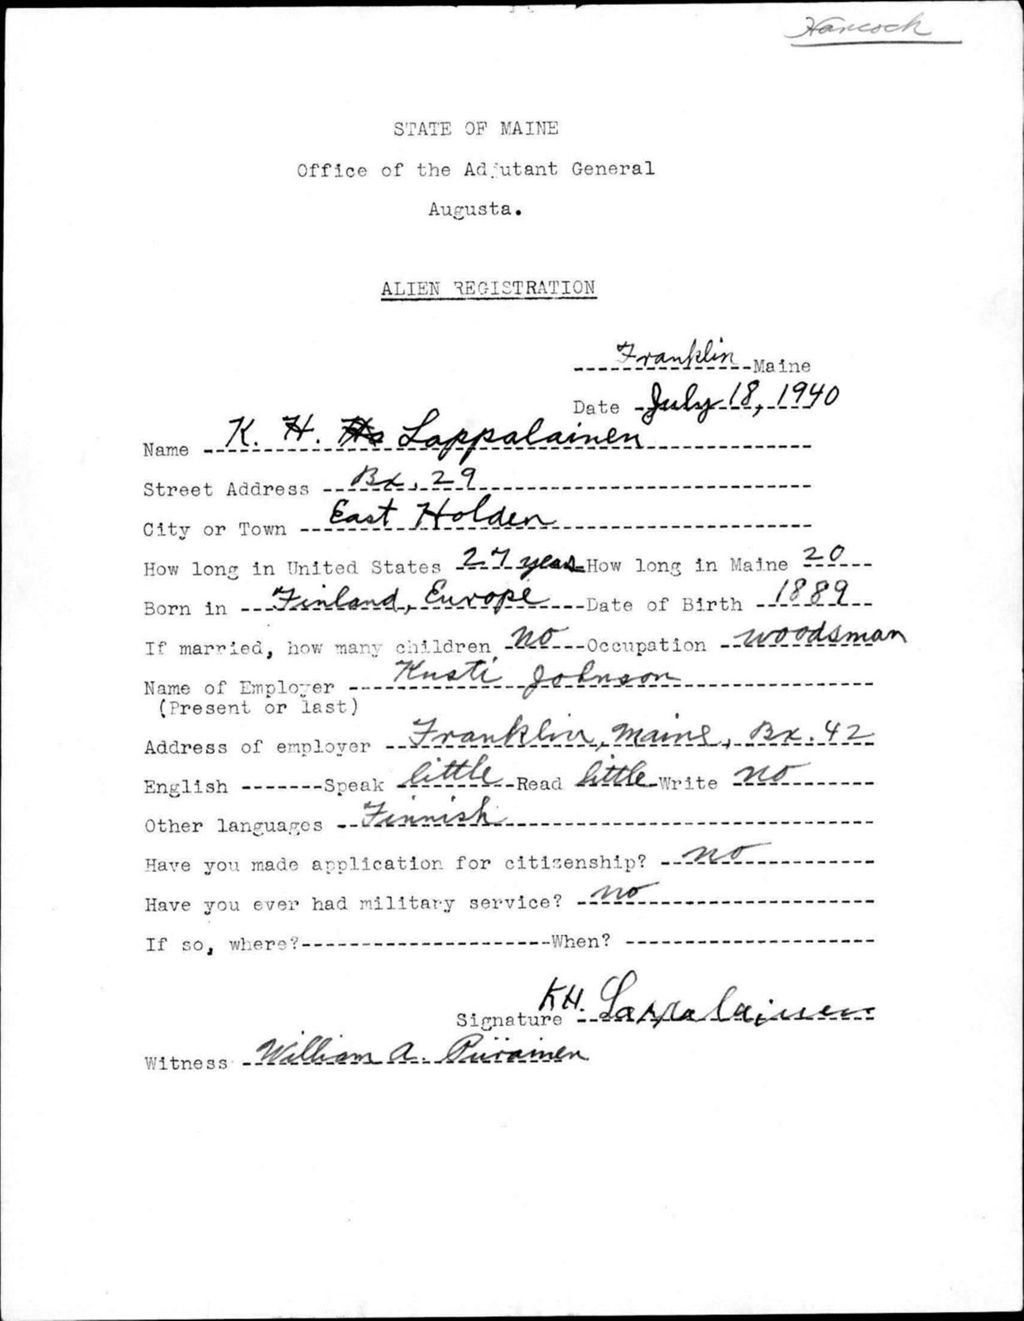 Hancock
STATE OF MAINE
Office of the Adjutant General
Augusta.
ALIEN REGISTRATION
Franklin Maine
Date July 18, 1940
Name K. H. Lappalainen
Street Address Bx. 29
City or Town East Holden
How long in United States 27 years How long in Maine 20
Born in Finland, Europe Date of Birth 1889
If married, how many children no Occupation woodsman
Name of Employer Kusti Johnson
(Present or last)
Address of employer Franklin, Maine, Bx. 42
English Speak little Read little Write no
Other languages Finnish
Have you made application for citizenship? no
Have you ever had military service? no
If so, where? When?
Signature K H. Lappalainen
Witness William A. Piirainen